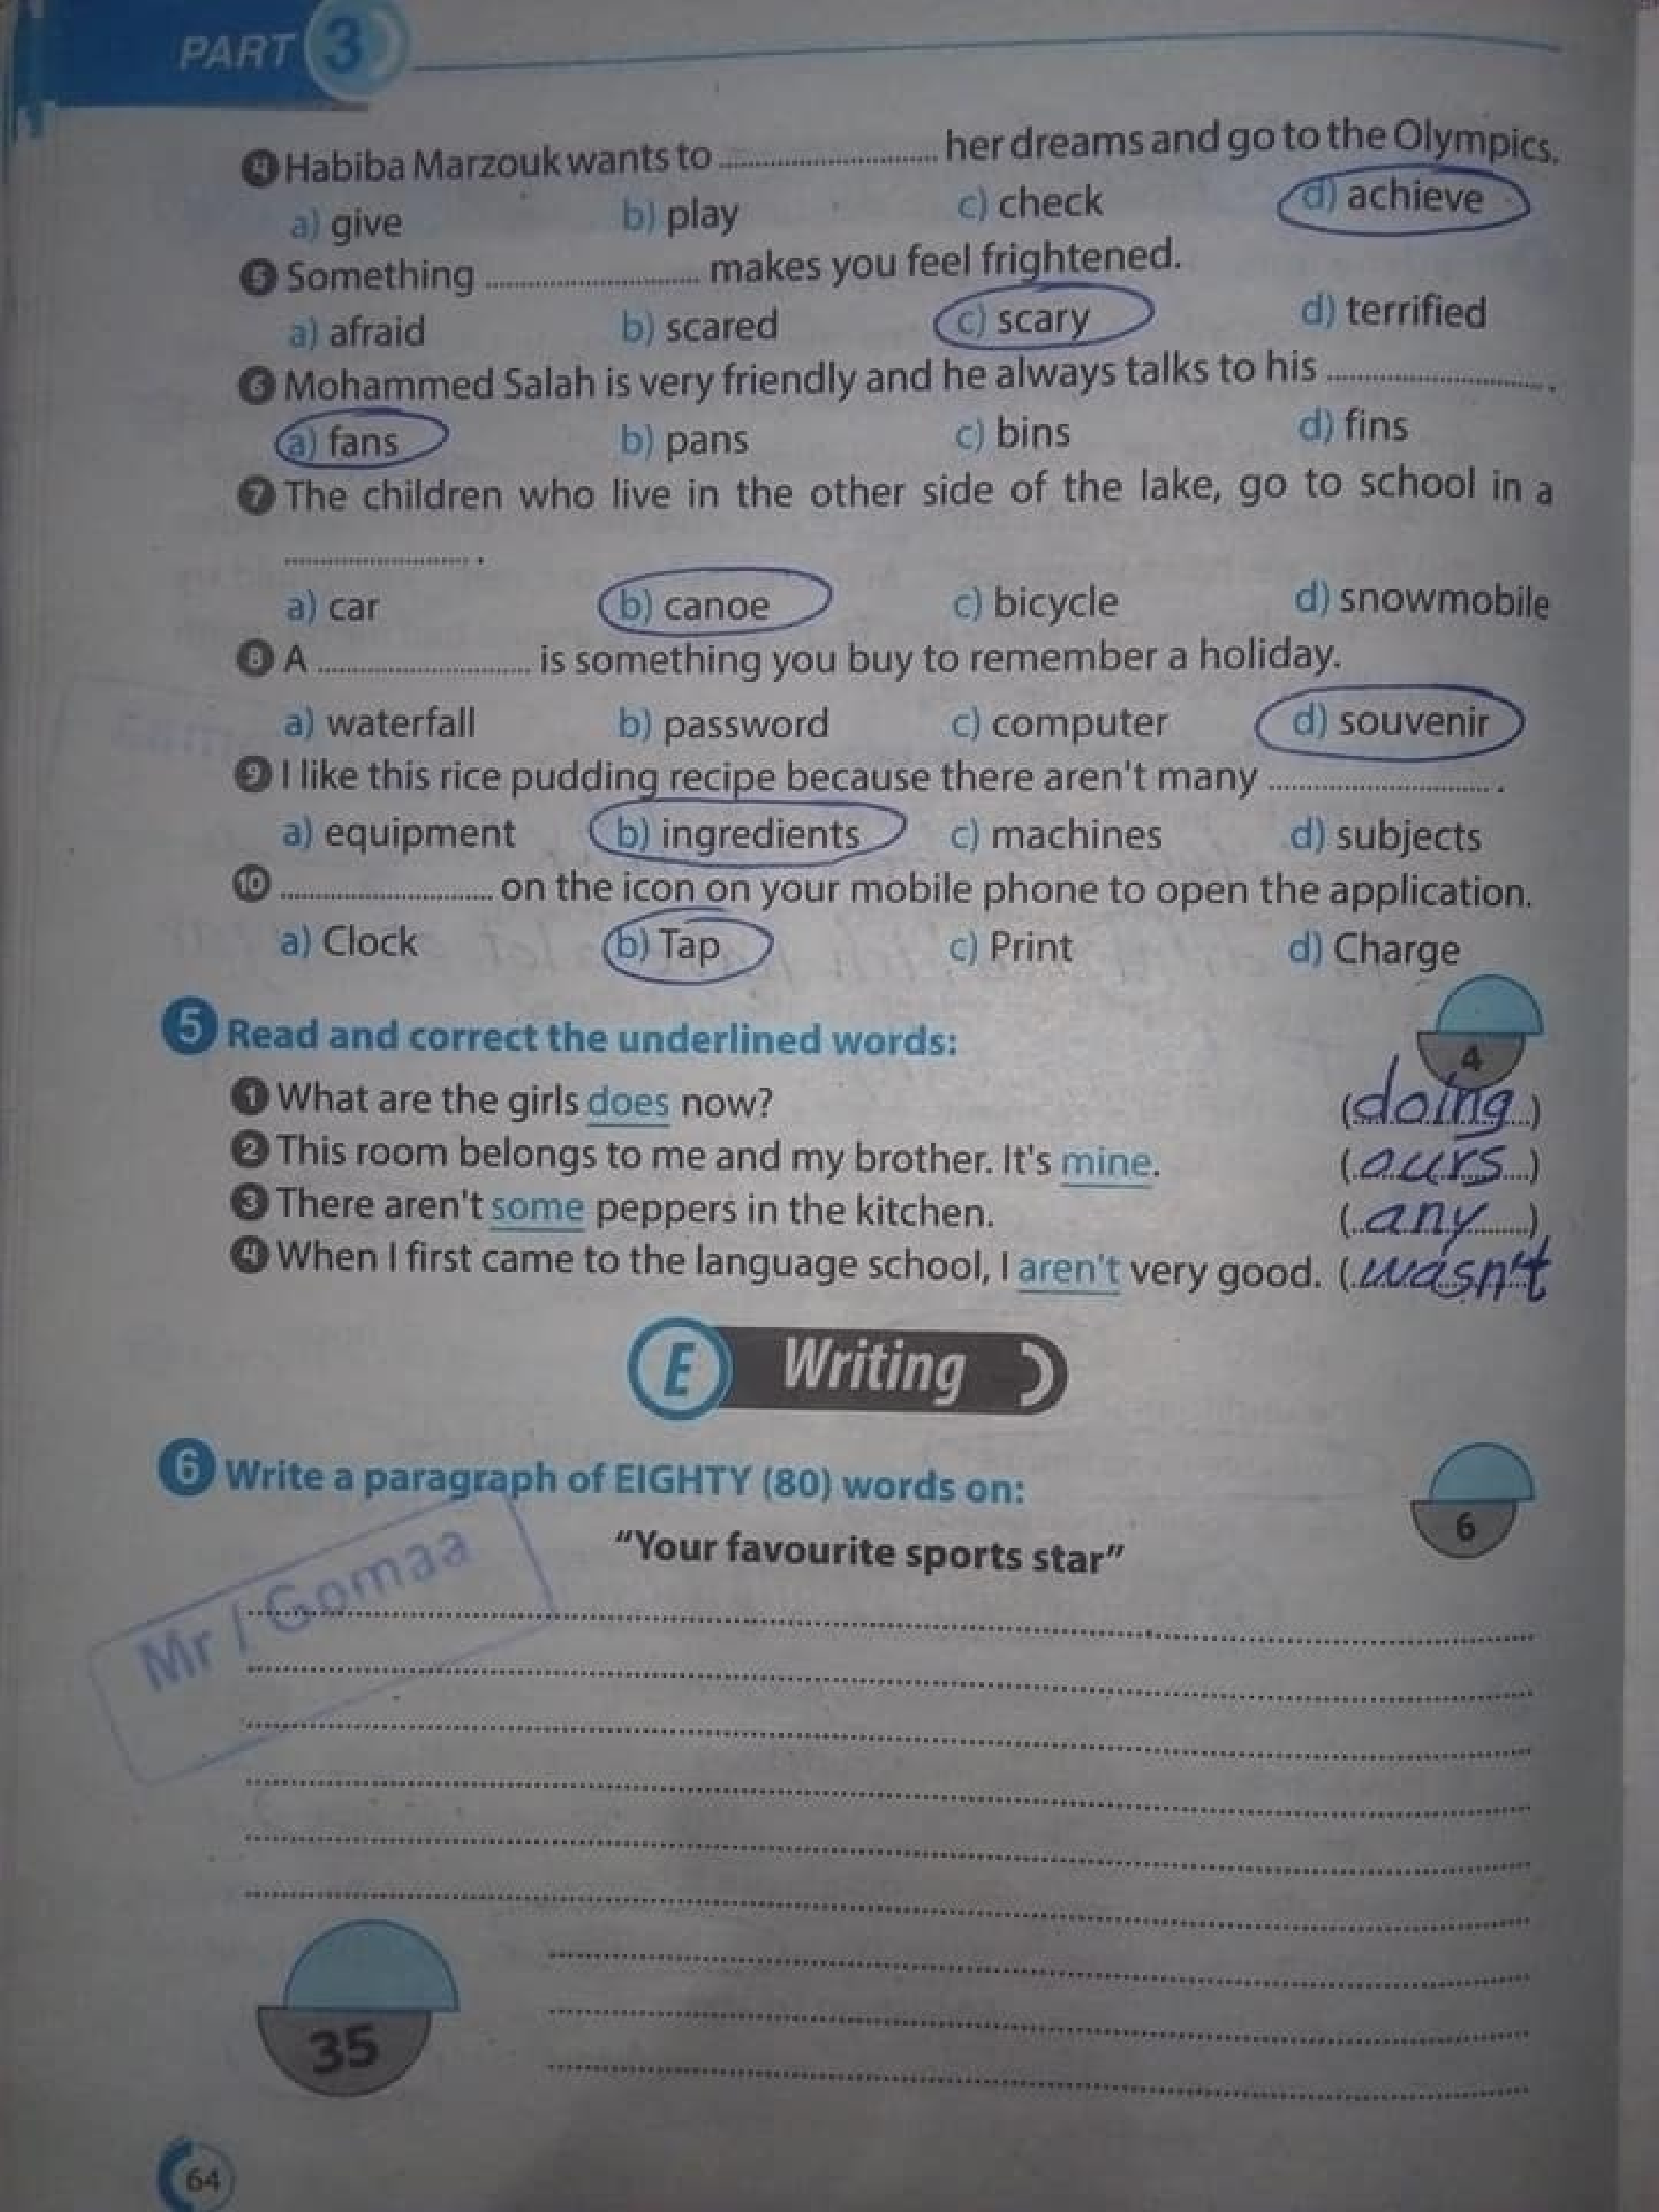 PART 3
4 Habiba Marzouk wants to ............................ her dreams and go to the Olympics.
a) give b) play c) check d) achieve
5 Something ............................ makes you feel frightened.
a) afraid b) scared c) scary d) terrified
6 Mohammed Salah is very friendly and he always talks to his ............................ .
a) fans b) pans c) bins d) fins
7 The children who live in the other side of the lake, go to school in a
............................ .
a) car b) canoe c) bicycle d) snowmobile
8 A ............................ is something you buy to remember a holiday.
a) waterfall b) password c) computer d) souvenir
9 I like this rice pudding recipe because there aren't many ............................ .
a) equipment b) ingredients c) machines d) subjects
10 ............................ on the icon on your mobile phone to open the application.
a) Clock b) Tap c) Print d) Charge
5 Read and correct the underlined words:
4
1 What are the girls does now? (doing)
2 This room belongs to me and my brother. It's mine. (ours)
3 There aren't some peppers in the kitchen. (any)
4 When I first came to the language school, I aren't very good. (wasn't
E Writing
6 Write a paragraph of EIGHTY (80) words on:
6
"Your favourite sports star"
Mr / Gomaa
35
64